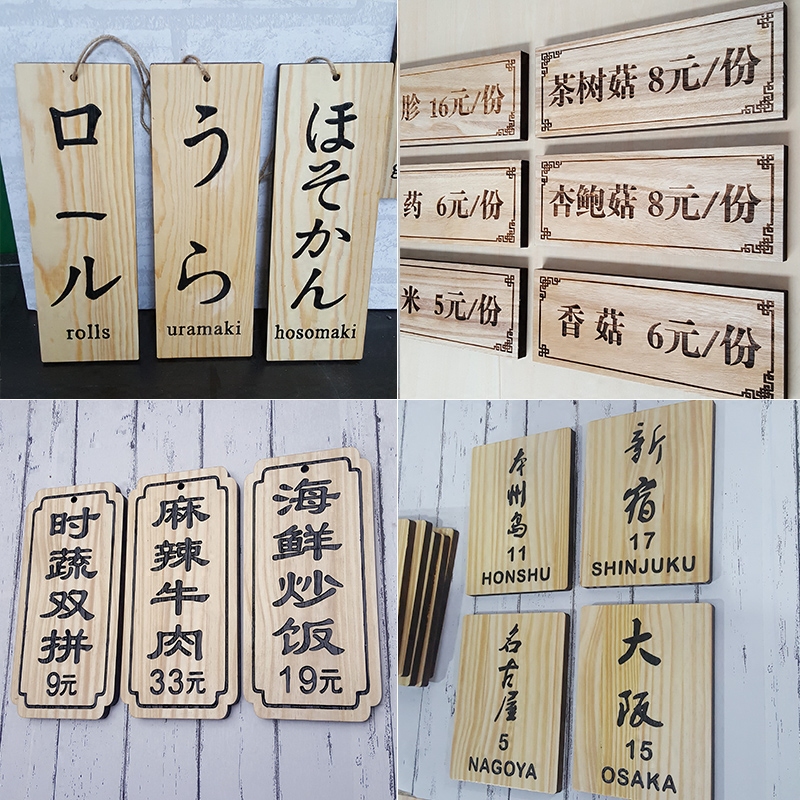 ロール
rolls
うら
uramaki
ほそかん
hosomaki
胗 16元/份
茶树菇 8元/份
药 6元/份
杏鲍菇 8元/份
米 5元/份
香菇 6元/份
时蔬双拼
9元
麻辣牛肉
33元
海鲜炒饭
19元
本州岛
11
HONSHU
新宿
17
SHINJUKU
名古屋
5
NAGOYA
大阪
15
OSAKA